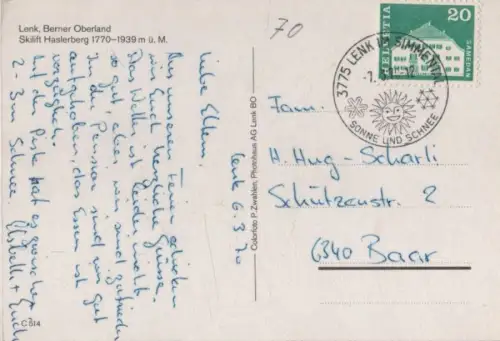 Lenk, Berner Oberland
Skilift Haslerberg 1770–1939 m ü. M.
70
HELVETIA
20
SAMEDAN
3775 LENK IM SIMMENTAL
-7. 3.
SONNE UND SCHNEE
Lenk 6. 3. 70
Liebe Eltern,
Aus unseren Ferien schicken
wir Euch herzliche Grüsse.
Das Wetter ist leider nicht
so gut, aber wir sind zufrieden.
In der Pension sind wir gut
aufgehoben, das Essen ist
vorzüglich.
Auf der Piste hat es zwischen
2 - 3 m Schnee.
Colorfoto P. Zwahlen, Photohaus AG Lenk BO
C 514
Fam.
H. Hug-Schärli
Schützenstr. 2
6340 Baar